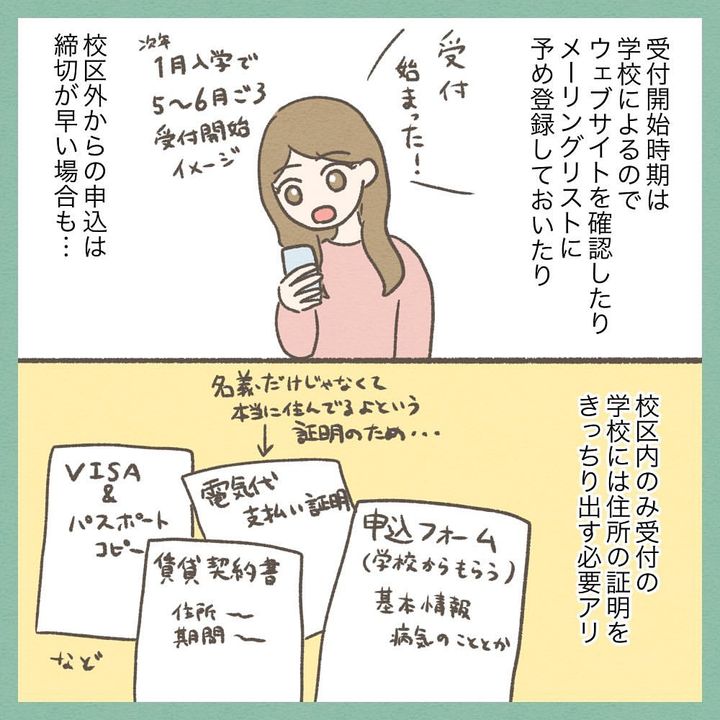 受付開始時期は
学校によるので
ウェブサイトを確認したり
メーリングリストに
予め登録しておいたり
受付
始まった!
次年
1月入学で
5〜6月ごろ
受付開始
イメージ
校区外からの申込は
締切が早い場合も…
校区内のみ受付の
学校には住所の証明を
きっちり出す必要アリ
名義だけじゃなくて
本当に住んでるよという
証明のため・・・
VISA
&
パスポート
コピー
電気代
支払い証明
賃貸契約書
住所〜
期間〜
申込フォーム
(学校からもらう)
基本情報
病気のこととか
など